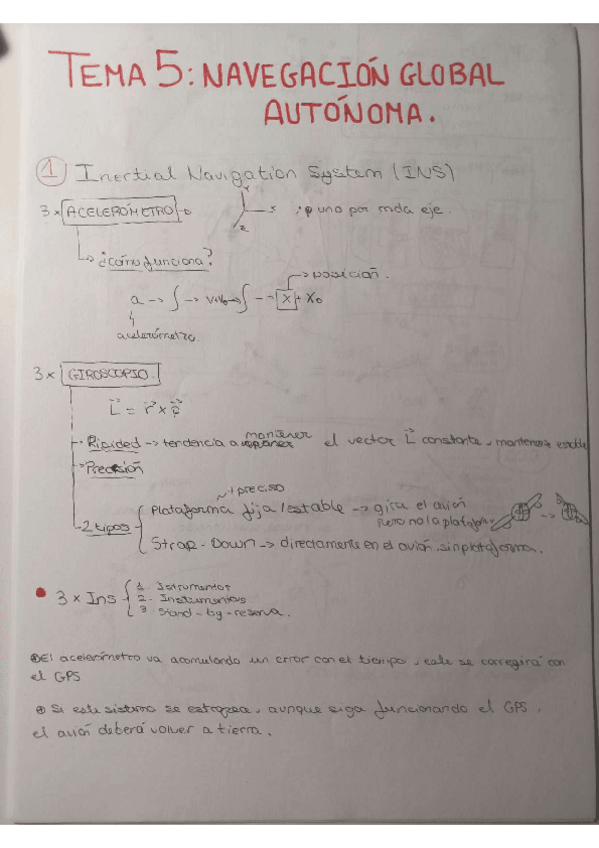 TEMA 5: NAVEGACIÓN GLOBAL
AUTÓNOMA.
1 Inertial Navigation System (INS)
3 x ACELERÓMETRO → Y X Z : uno por cada eje.
¿cómo funciona?
→ posición.
a → ∫ → → ∫ → X + X₀
acelerómetro.
3 x GIROSCOPIO.
L = r x p
- Rigided → tendencia a mantener el vector L constante, mantenerse estable
- Precesión
+ preciso
- 2 tipos Plataforma fija / estable → gira el avión
pero no la plataforma
Strap-Down → directamente en el avión, sin plataforma.
• 3 x Ins 1. Istrumentos
2. Instrumentos
3. Stand-by-reserva.
El acelerómetro va acumulando un error con el tiempo, este se corregirá con
el GPS
Si este sistema se estropea, aunque siga funcionando el GPS,
el avión deberá volver a tierra.